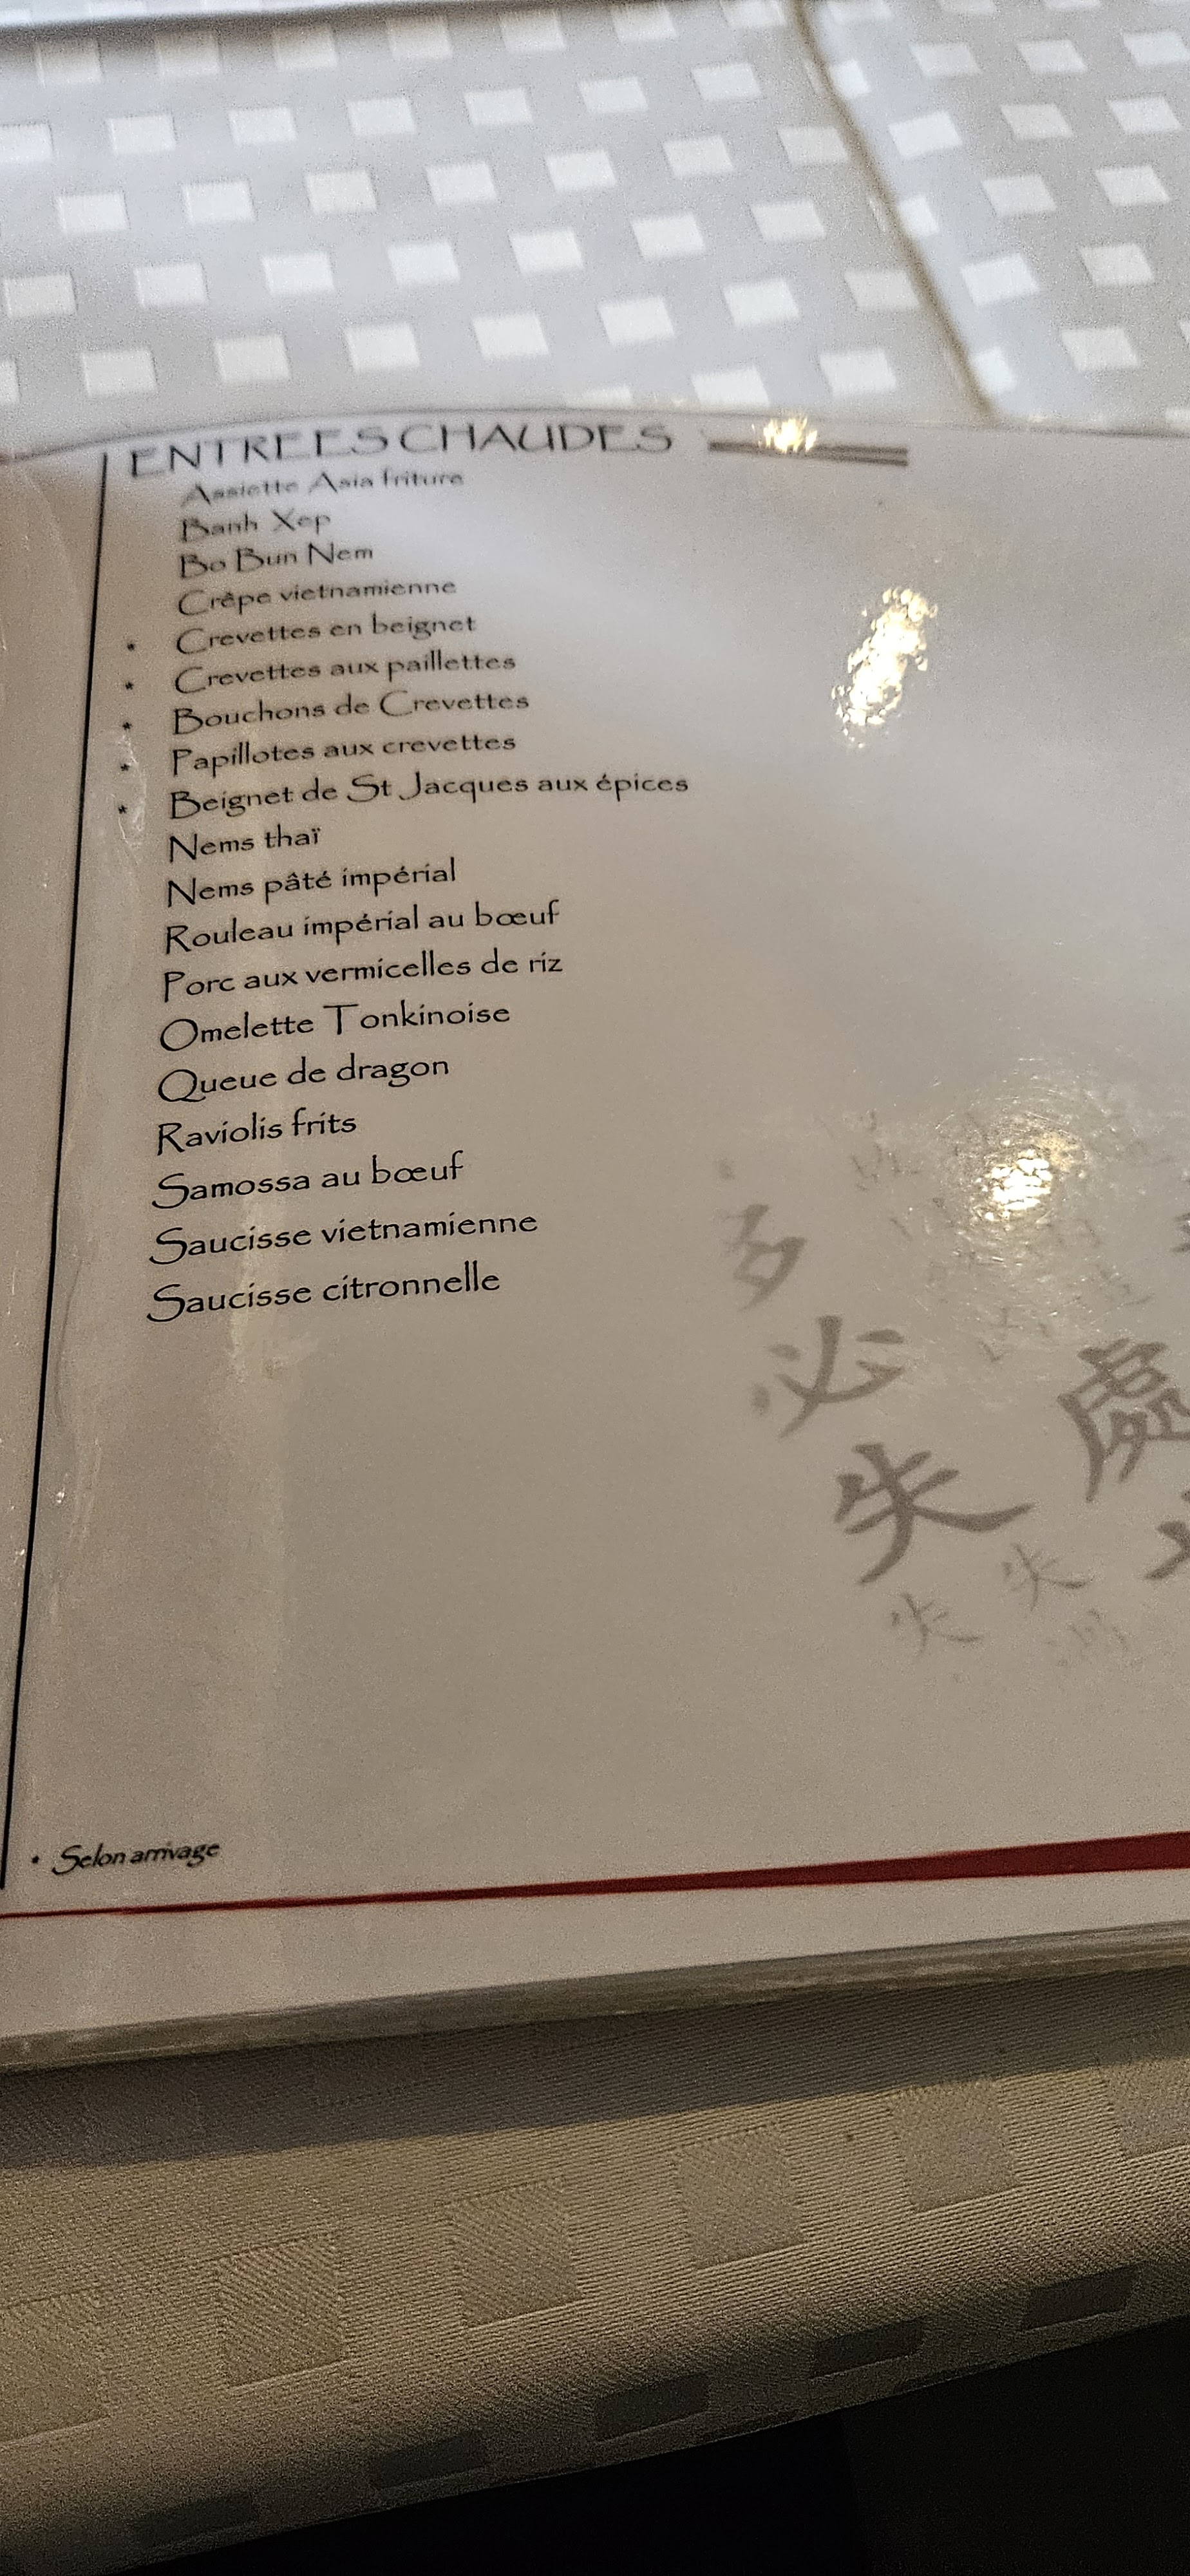 ENTREES CHAUDES
Assiette Asia friture
Banh Xep
Bo Bun Nem
Crêpe vietnamienne
* Crevettes en beignet
* Crevettes aux paillettes
* Bouchons de Crevettes
* Papillotes aux crevettes
* Beignet de St Jacques aux épices
Nems thaï
Nems pâté impérial
Rouleau impérial au bœuf
Porc aux vermicelles de riz
Omelette Tonkinoise
Queue de dragon
Raviolis frits
Samossa au bœuf
Saucisse vietnamienne
Saucisse citronnelle
必
處
失
失
失
* Selon arrivage